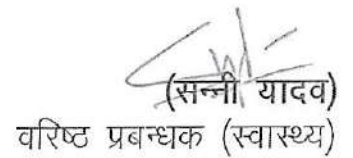 (सन्नी यादव)
वरिष्ठ प्रबन्धक (स्वास्थ्य)